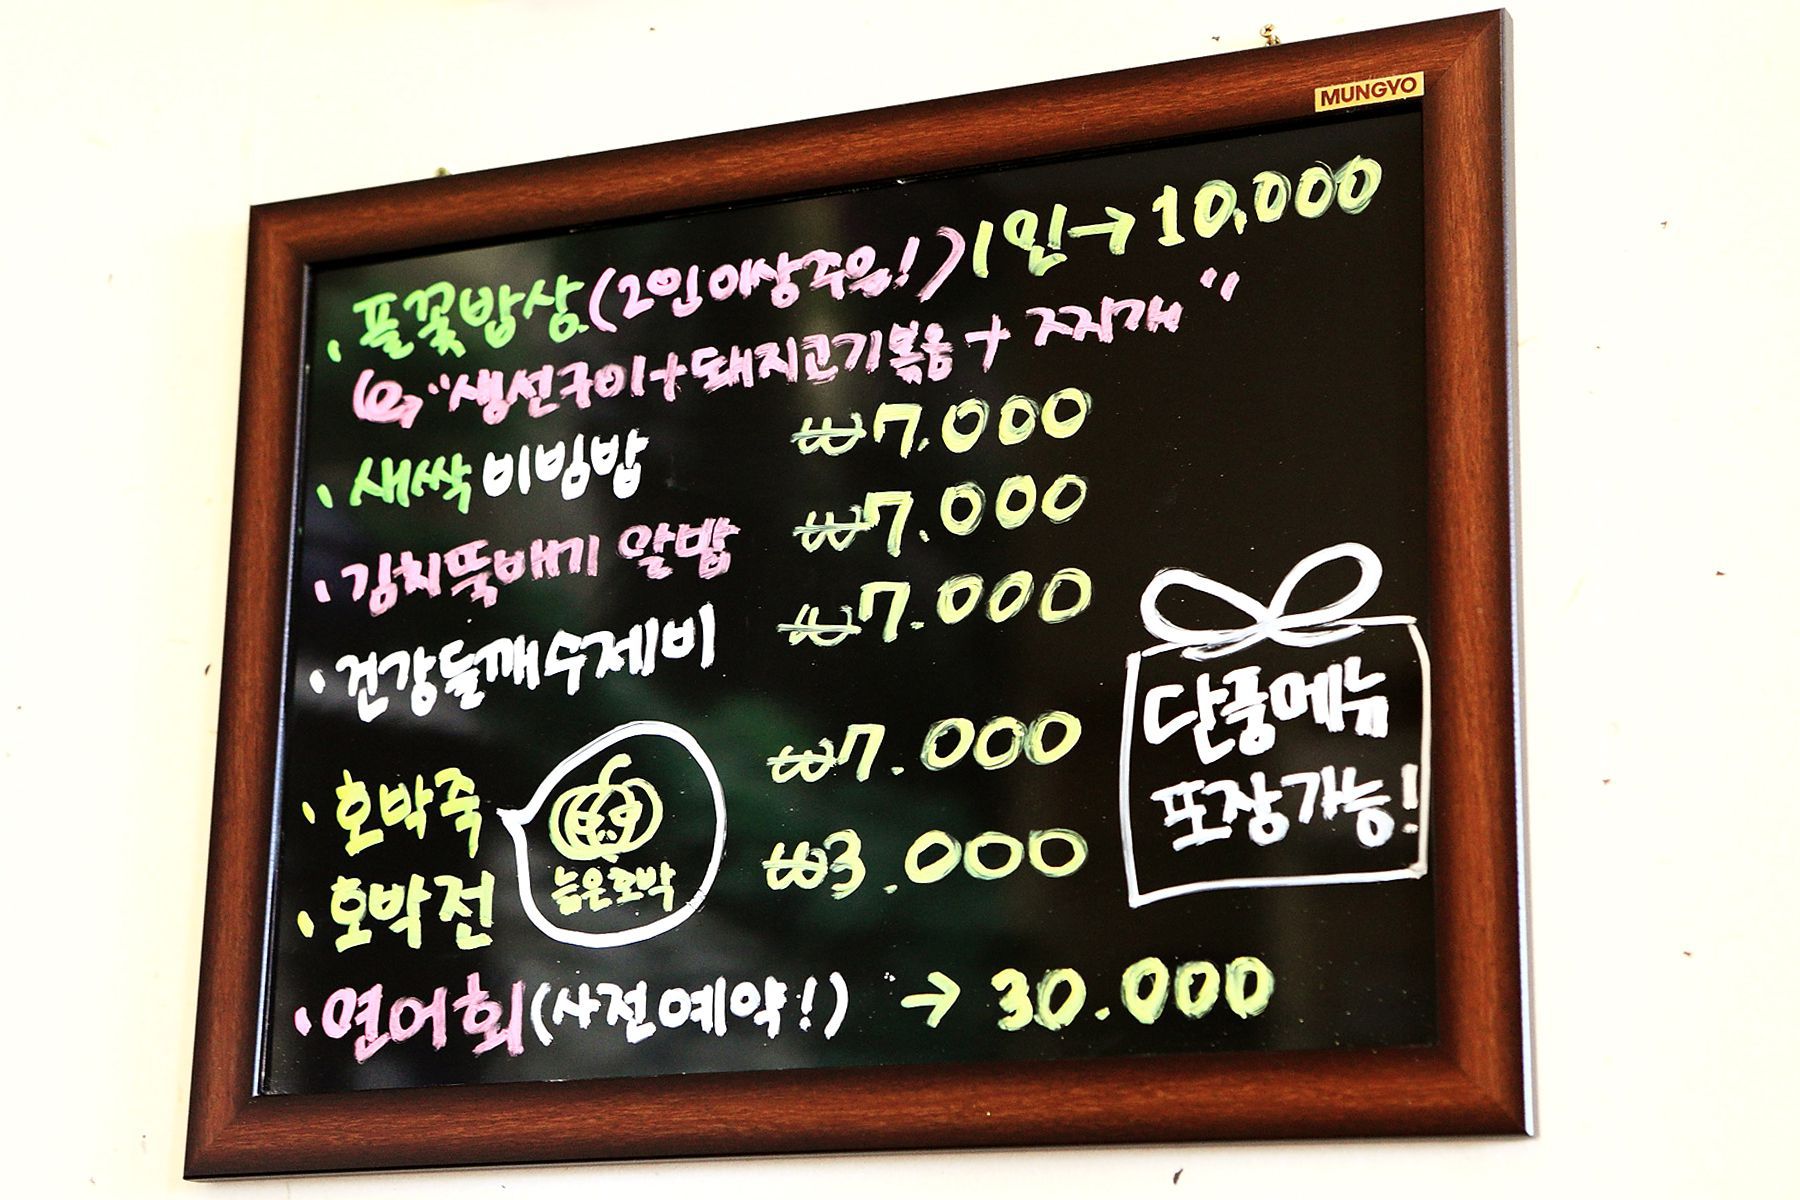 MUNGYO
· 풀꽃밥상(2인이상주문!) 1인→10,000
↪"생선구이+돼지고기볶음+찌개"
· 새싹비빔밥 ₩7.000
· 김치뚝배기 알밥 ₩7.000
· 건강들깨수제비 ₩7.000
· 호박죽 ₩7.000
· 호박전 ₩3.000
늙은호박
· 연어회(사전예약!) → 30.000
단풍메뉴
포장가능!